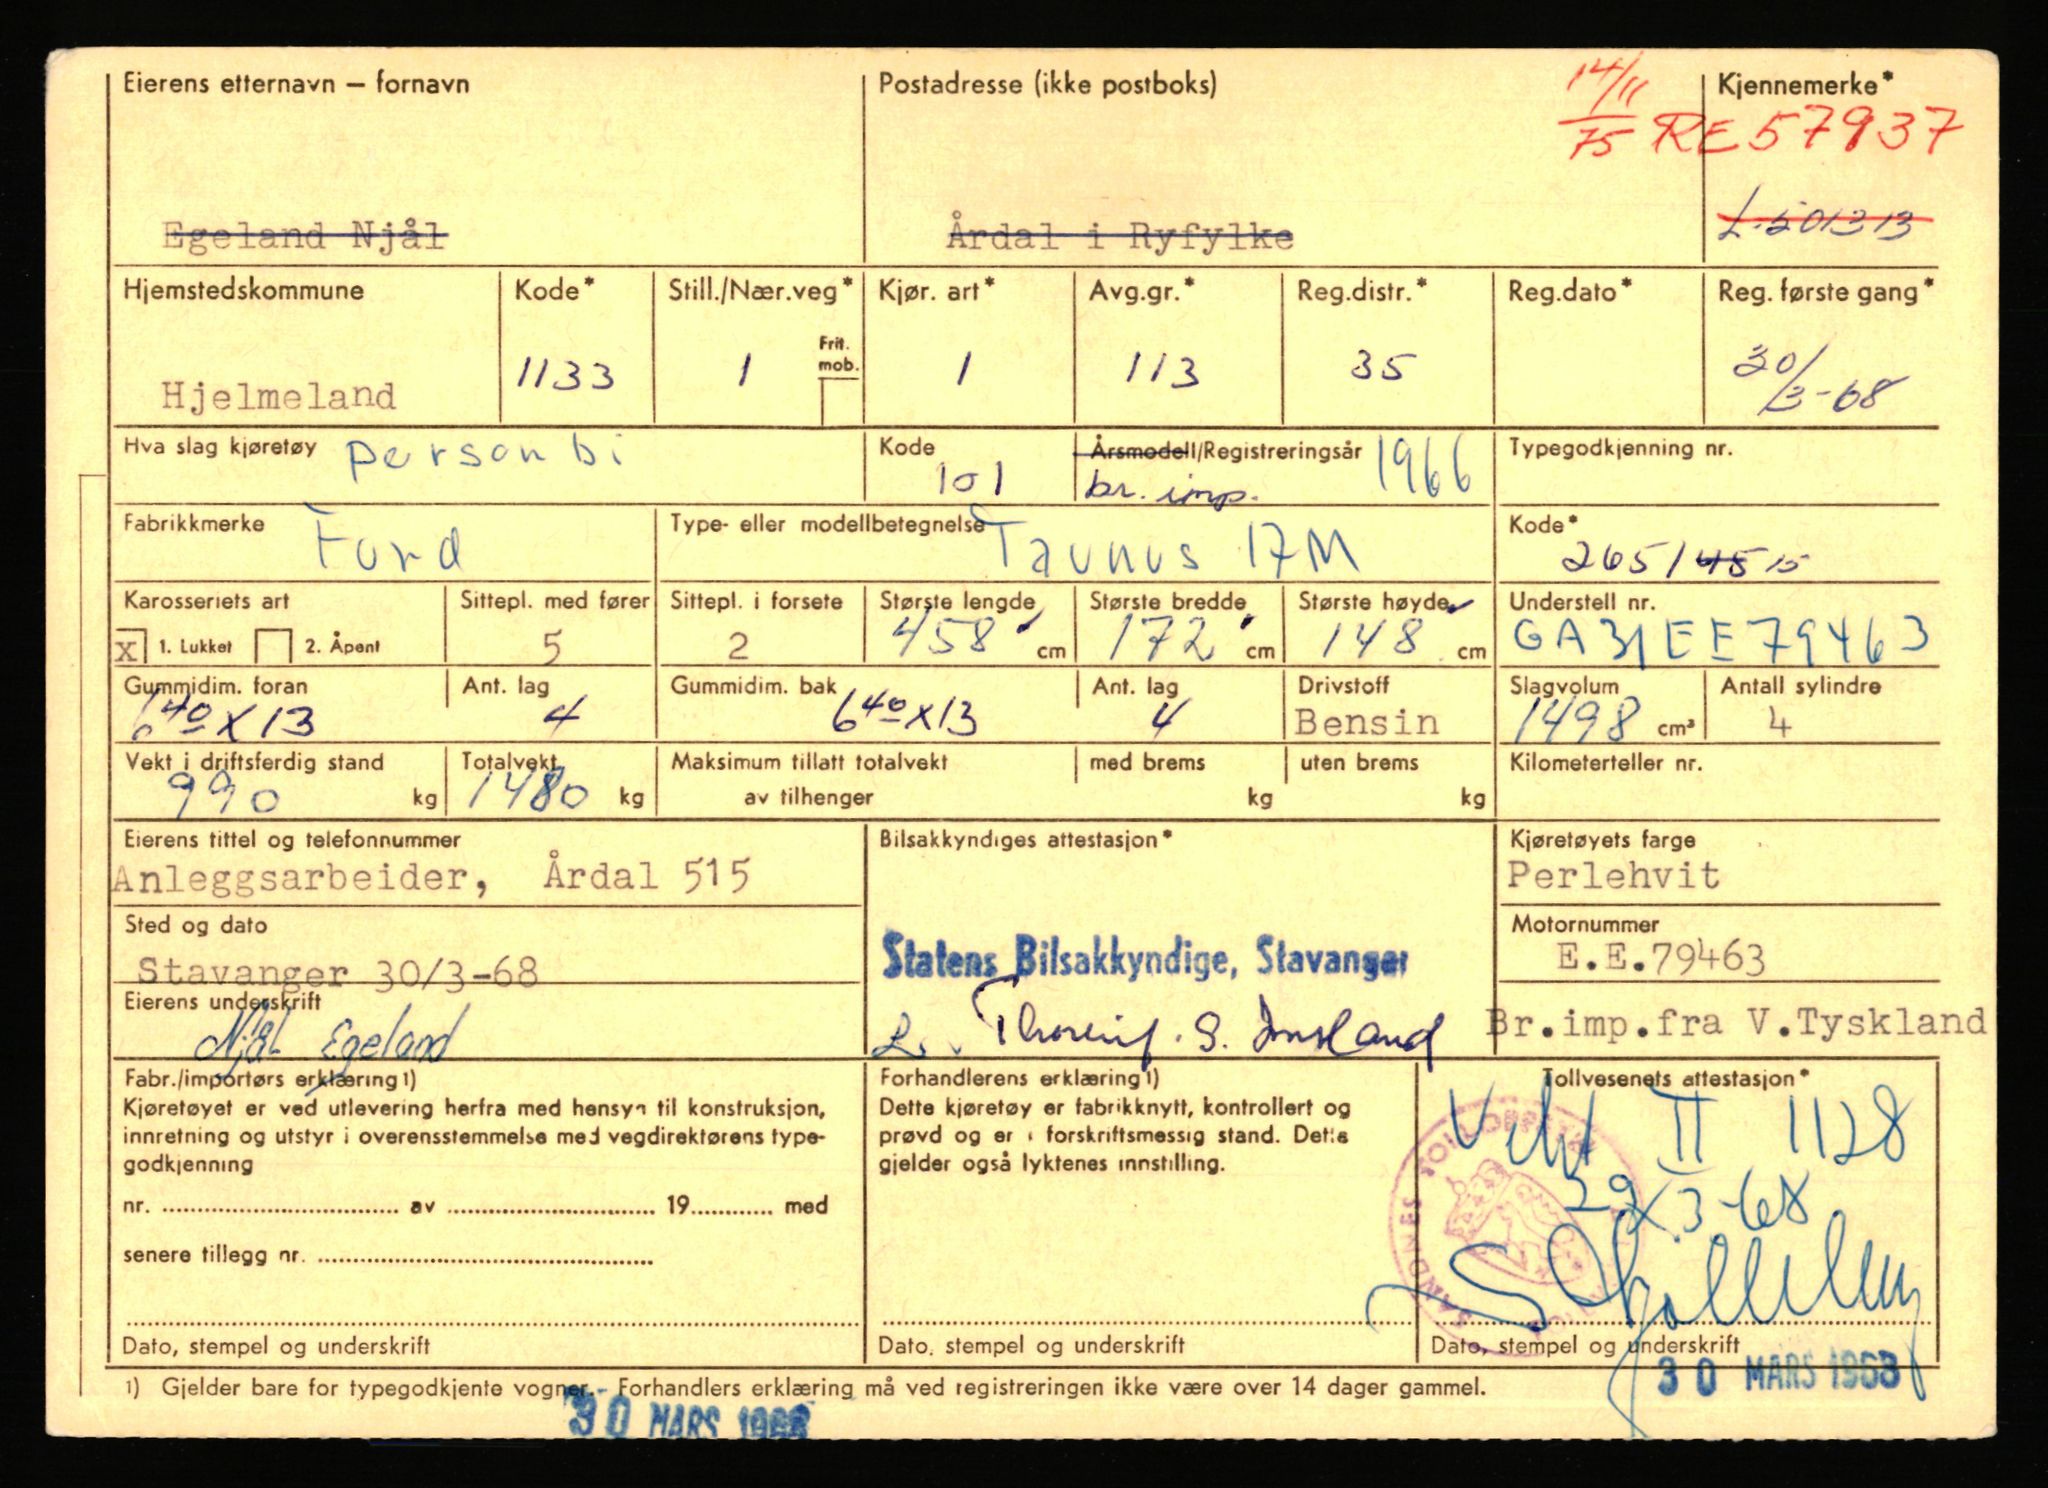 Eierens etternavn – fornavn
Postadresse (ikke postboks)
14/11 75
Kjennemerke*
RE57937
Egeland Njål
Årdal i Ryfylke
L-501313
Hjemstedskommune
Kode*
Still./Nær.veg*
Kjør. art*
Avg.gr.*
Reg.distr.*
Reg.dato*
Reg. første gang*
Frit. mob.
Hjelmeland
1133
1
1
113
35
30/3-68
Hva slag kjøretøy personbi
Kode 101
Årsmodell/Registreringsår 1966
br. imp.
Typegodkjenning nr.
Fabrikkmerke Ford
Type- eller modellbetegnelse Taunus 17M
Kode*
2651 45 15
Karosseriets art
Sittepl. med fører
Sittepl. i forsete
Største lengde
Største bredde
Største høyde
Understell nr.
X 1. Lukket 2. Åpent
5
2
458 cm
172 cm
148 cm
GA31EE79463
Gummidim. foran
Ant. lag
Gummidim. bak
Ant. lag
Drivstoff
Slagvolum
Antall sylindre
640x13
4
640x13
4
Bensin
1498 cm³
4
Vekt i driftsferdig stand
Totalvekt
Maksimum tillatt totalvekt
med brems
uten brems
Kilometerteller nr.
990 kg
1480 kg
av tilhenger
kg
kg
Eierens tittel og telefonnummer
Bilsakkyndiges attestasjon*
Kjøretøyets farge
Anleggsarbeider, Årdal 515
Perlehvit
Sted og dato
Motornummer
Stavanger 30/3-68
Statens Bilsakkyndige, Stavanger
E.E.79463
Eierens underskrift
Njål Egeland
Br.imp.fra V.Tyskland
Fabr./importørs erklæring 1)
Kjøretøyet er ved utlevering herfra med hensyn til konstruksjon,
innretning og utstyr i overensstemmelse med vegdirektørens type-
godkjenning
nr. av 19 med
senere tillegg nr.
Dato, stempel og underskrift
Forhandlerens erklæring 1)
Dette kjøretøy er fabrikknytt, kontrollert og
prøvd og er i forskriftsmessig stand. Dette
gjelder også lyktenes innstilling.
Dato, stempel og underskrift
Tollvesenets attestasjon*
II 1128
29/3-68
SANDNES
Dato, stempel og underskrift
30 MARS 1968
1) Gjelder bare for typegodkjente vogner. - Forhandlers erklæring må ved registreringen ikke være over 14 dager gammel.
30 MARS 1968